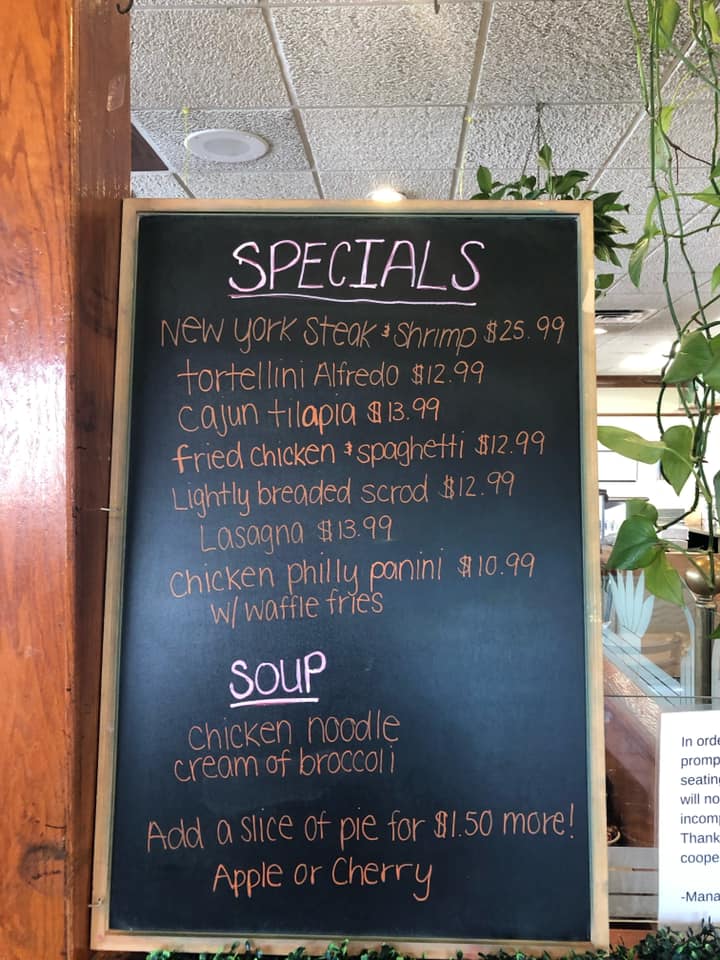 SPECIALS
New York Steak & Shrimp $25.99
tortellini Alfredo $12.99
cajun tilapia $13.99
fried chicken & spaghetti $12.99
Lightly breaded scrod $12.99
Lasagna $13.99
Chicken philly panini $10.99
w/ waffle fries
SOUP
chicken noodle
cream of broccoli
Add a slice of pie for $1.50 more!
Apple or Cherry
In orde
promp
seatin
will no
incom
Thank
coope
-Mana